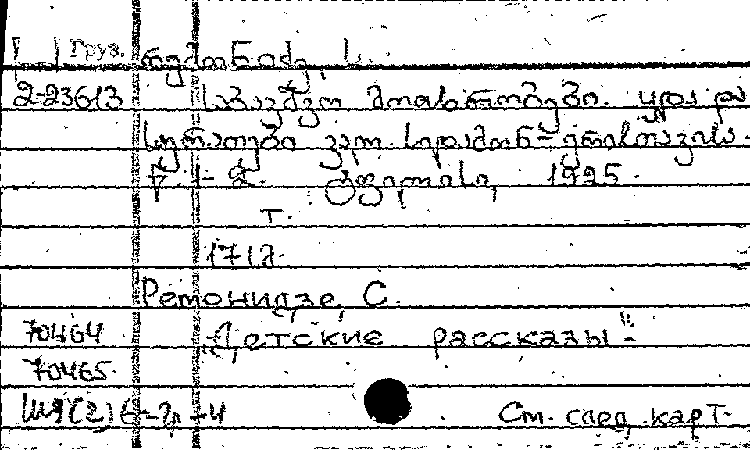 Груз. რემონიძე, ს.
2-23613 საბავშვო მოთხრობები. ყდა და
სურათები ვალ. სიდამონ-ერისთავისა.
წ. 1-2. ტფილისი, 1925.
т.
171 გ.
Ремонидзе, С.
70464 "Детские рассказы".
70465.
См. след. карт.